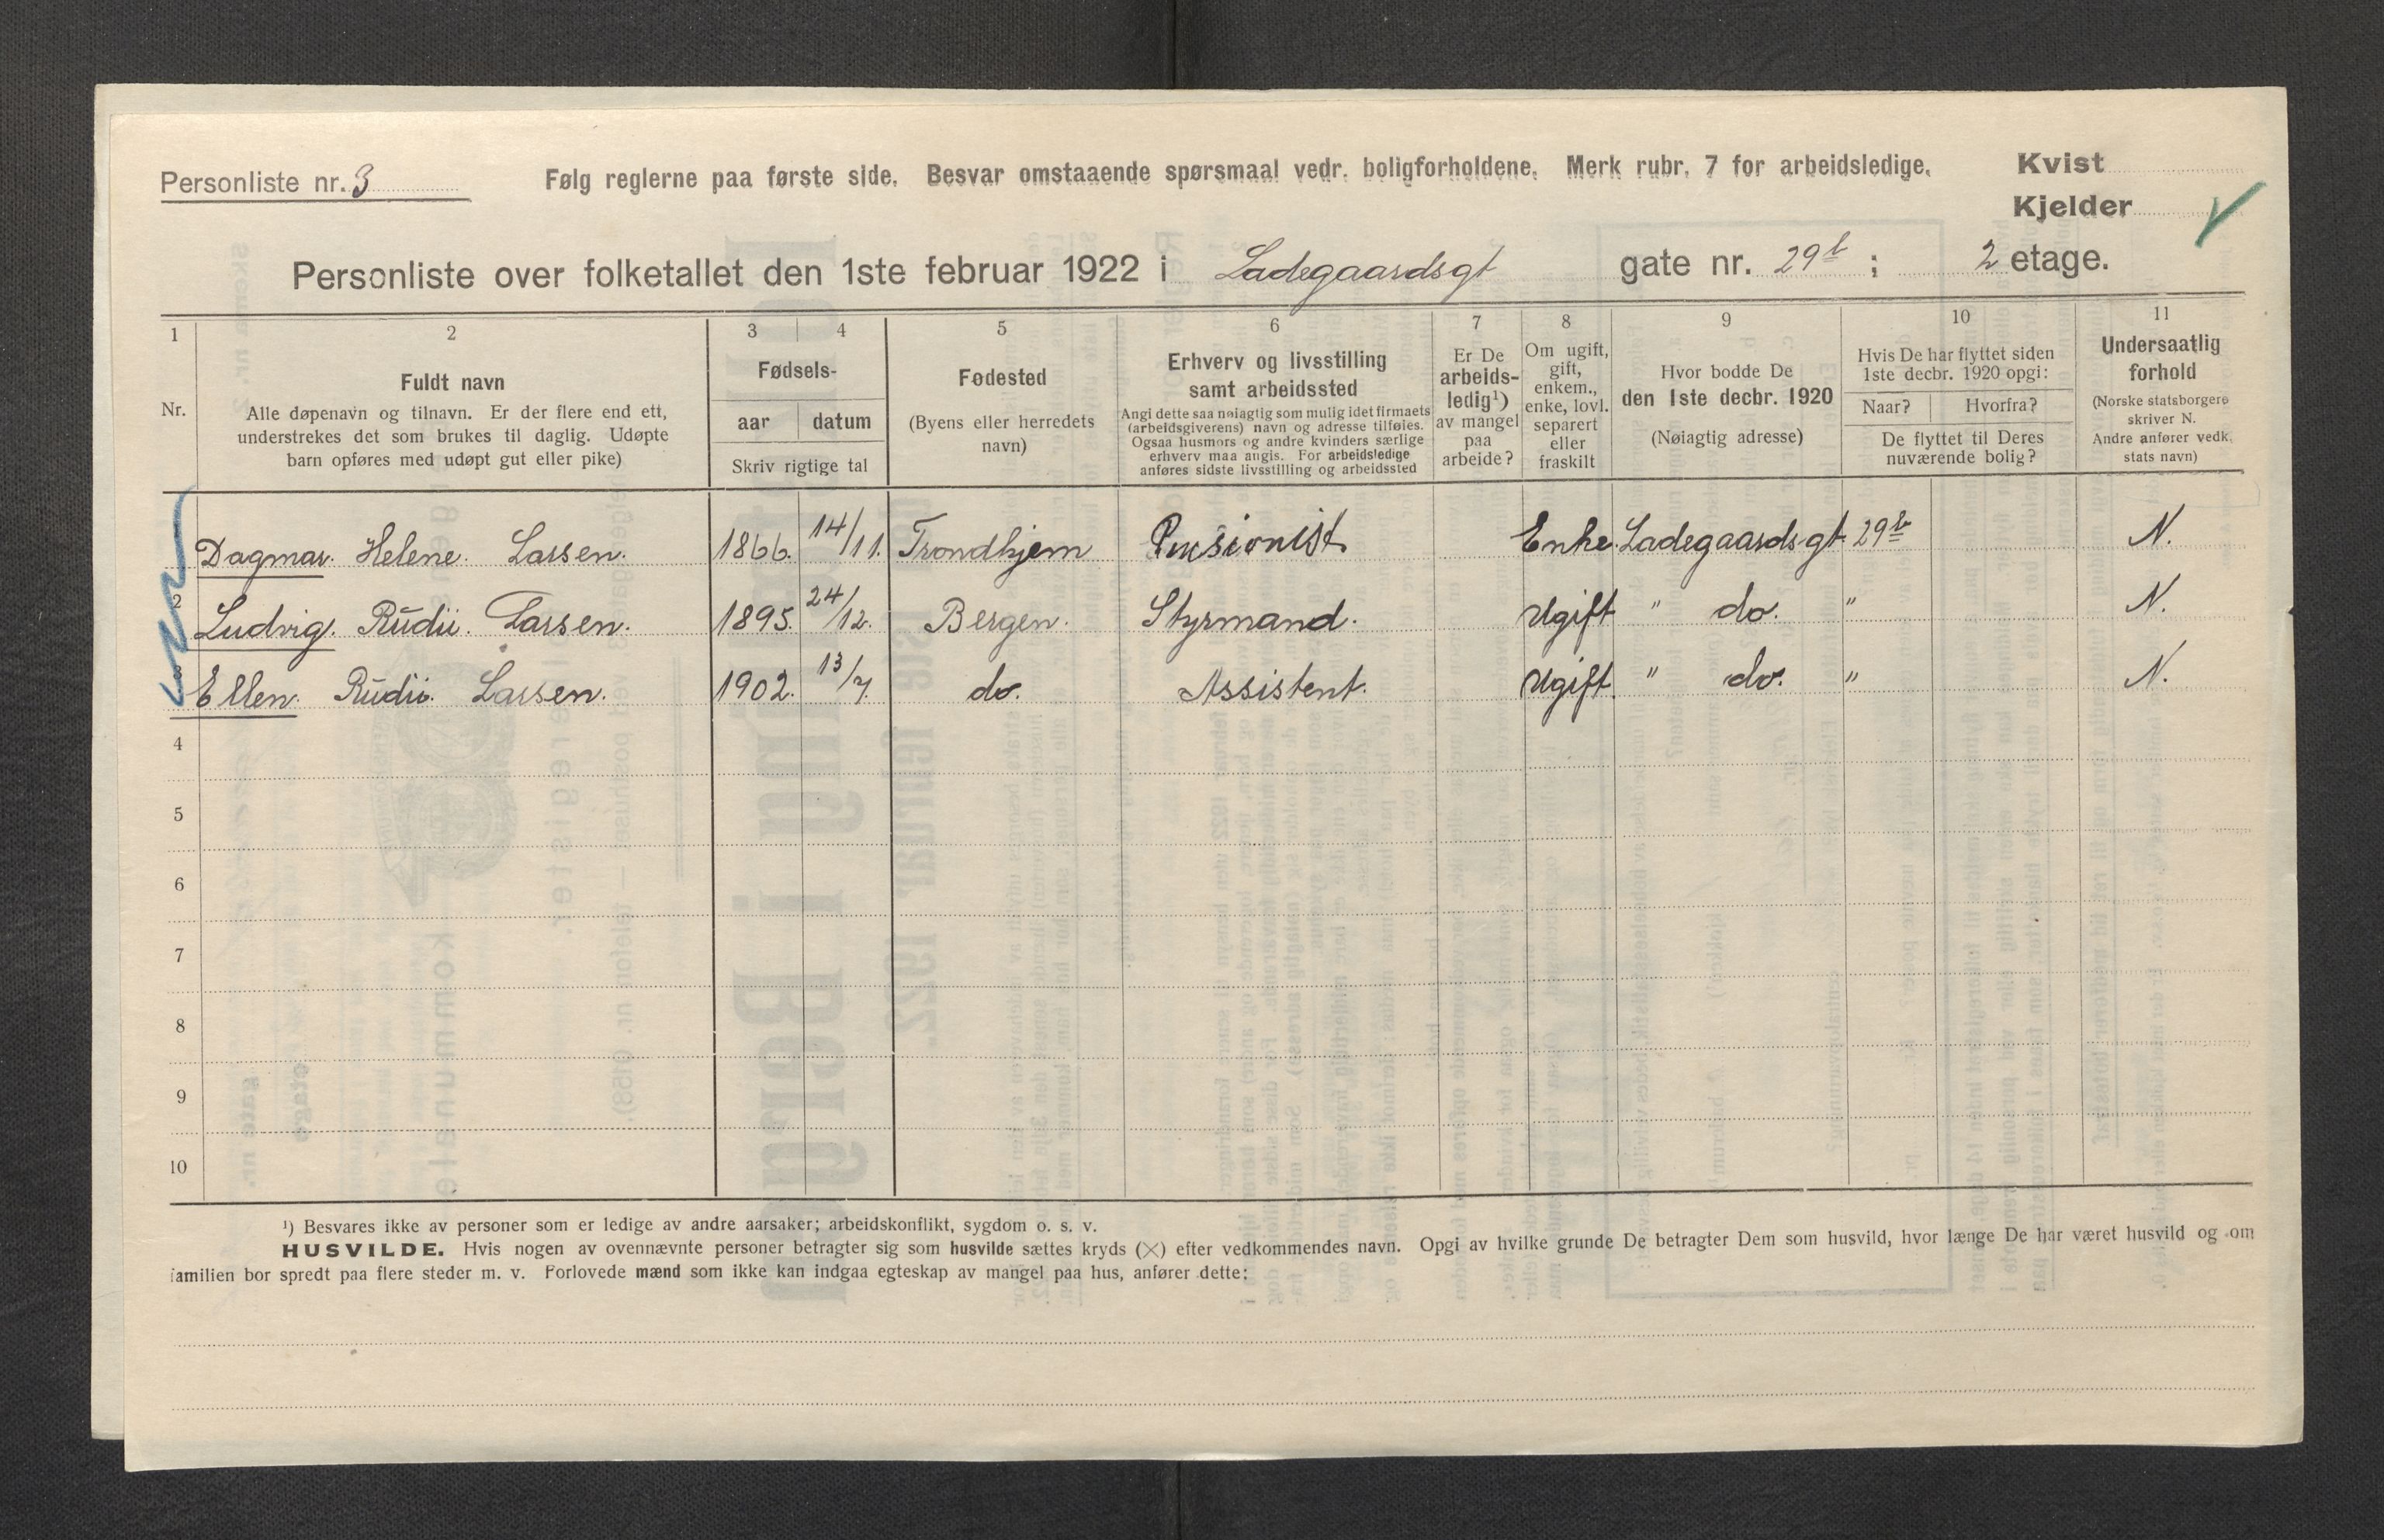 Personliste nr. 3
Følg reglerne paa første side. Besvar omstaaende spørsmaal vedr. boligforholdene. Merk rubr. 7 for arbeidsledige.
Kvist
Kjelder
Personliste over folketallet den 1ste februar 1922 i Ladegaardsgt gate nr. 29b ; 2 etage.
1 2 3 4 5 6 7 8 9 10 11
Nr.
Fuldt navn
Alle døpenavn og tilnavn. Er der flere end ett,
understrekes det som brukes til daglig. Udøpte
barn opføres med udøpt gut eller pike)
Fødsels-
aar datum
Skriv rigtige tal
Fødested
(Byens eller herredets
navn)
Erhverv og livsstilling
samt arbeidssted
Angi dette saa nøiagtig som mulig idet firmaets
(arbeidsgiverens) navn og adresse tilføies.
Ogsaa husmors og andre kvinders særlige
erhverv maa angis. For arbeidsledige
anføres sidste livsstilling og arbeidssted
Er De
arbeids-
ledig¹)
av mangel
paa
arbeide?
Om ugift,
gift,
enkem.,
enke, lovl.
separert
eller
fraskilt
Hvor bodde De
den 1ste decbr. 1920
(Nøiagtig adresse)
Hvis De har flyttet siden
1ste decbr. 1920 opgi:
Naar? Hvorfra?
De flyttet til Deres
nuværende bolig?
Undersaatlig
forhold
(Norske statsborgere
skriver N.
Andre anfører vedk.
stats navn)
Dagmar. Helene. Larsen. 1866. 14/11. Trondhjem Pensionist Enke. Ladegaardsgt. 29b N.
2 Ludvig. Rüdii. Larsen. 1895. 24/12. Bergen. Styrmand. Ugift " do. " N.
3 Ellen. Rüdii. Larsen. 1902. 13/7. do. Assistent. Ugift. " do. " N.
4
5
6
7
8
9
10
¹) Besvares ikke av personer som er ledige av andre aarsaker; arbeidskonflikt, sygdom o. s. v.
HUSVILDE. Hvis nogen av ovennævnte personer betragter sig som husvilde sættes kryds (×) efter vedkommendes navn. Opgi av hvilke grunde De betragter Dem som husvild, hvor længe De har været husvild og om
familien bor spredt paa flere steder m. v. Forlovede mænd som ikke kan indgaa egteskap av mangel paa hus, anfører dette: